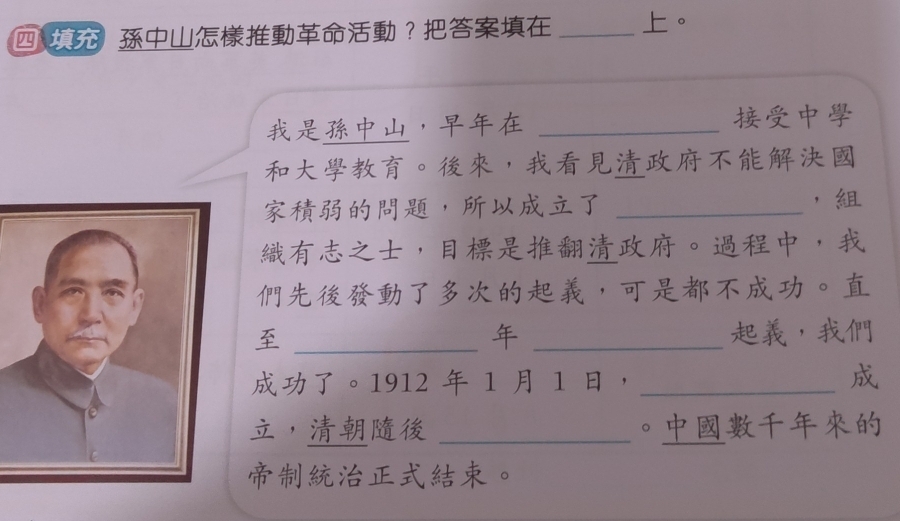 四 填充 孫中山怎樣推動革命活動？把答案填在 ______ 上。
我是孫中山，早年在 ______ 接受中學
和大學教育。後來，我看見清政府不能解決國
家積弱的問題，所以成立了 ______ ，組
織有志之士，目標是推翻清政府。過程中，我
們先後發動了多次的起義，可是都不成功。直
至 ______ 年 ______ 起義，我們
成功了。1912 年 1 月 1 日， ______ 成
立，清朝隨後 ______ 。中國數千年來的
帝制統治正式結束。